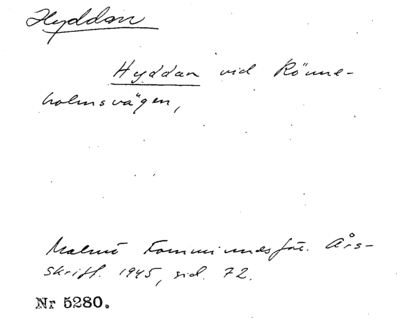 Hyddan
Hyddan vid Rönne-
holmsvägen,
Malmö Fornminnesför. Års-
skrift. 1945, sid. 72.
Nr 5280.